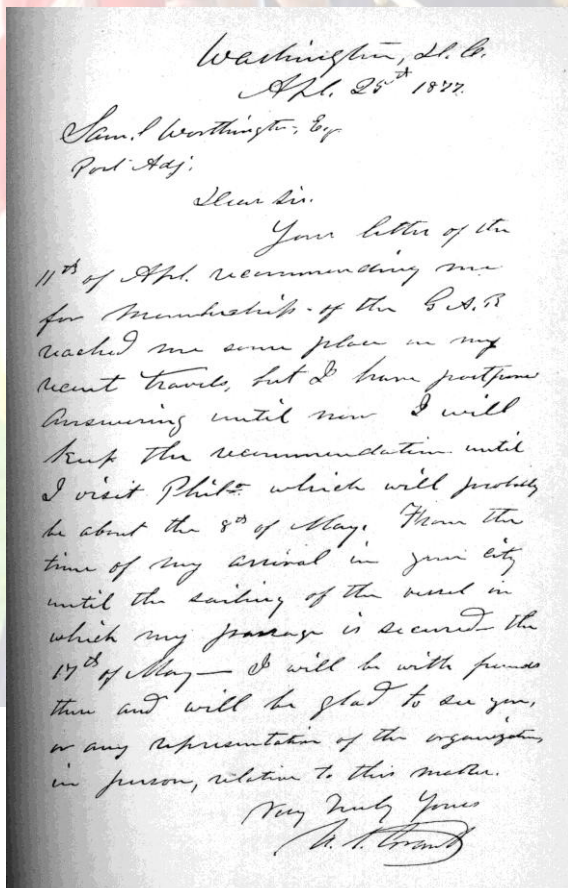 Washington, D.C.
Apl. 25th 1877.
Saml Worthington, Esq
Post Adj.
Dear Sir.
Your letter of the
11th of Apl. recommending me
for membership of the G.A.R
reached me some place in my
recent travels, but I have postpone
answering until now I will
keep the recommendation until
I visit Phila which will probably
be about the 8th of May. From the
time of my arrival in your city
until the sailing of the vessel in
which my passage is secured the
17th of May — I will be with friends
there and will be glad to see you,
or any representation of the organization
in person, relative to this matter.
Very Truly Yours
U. S. Grant